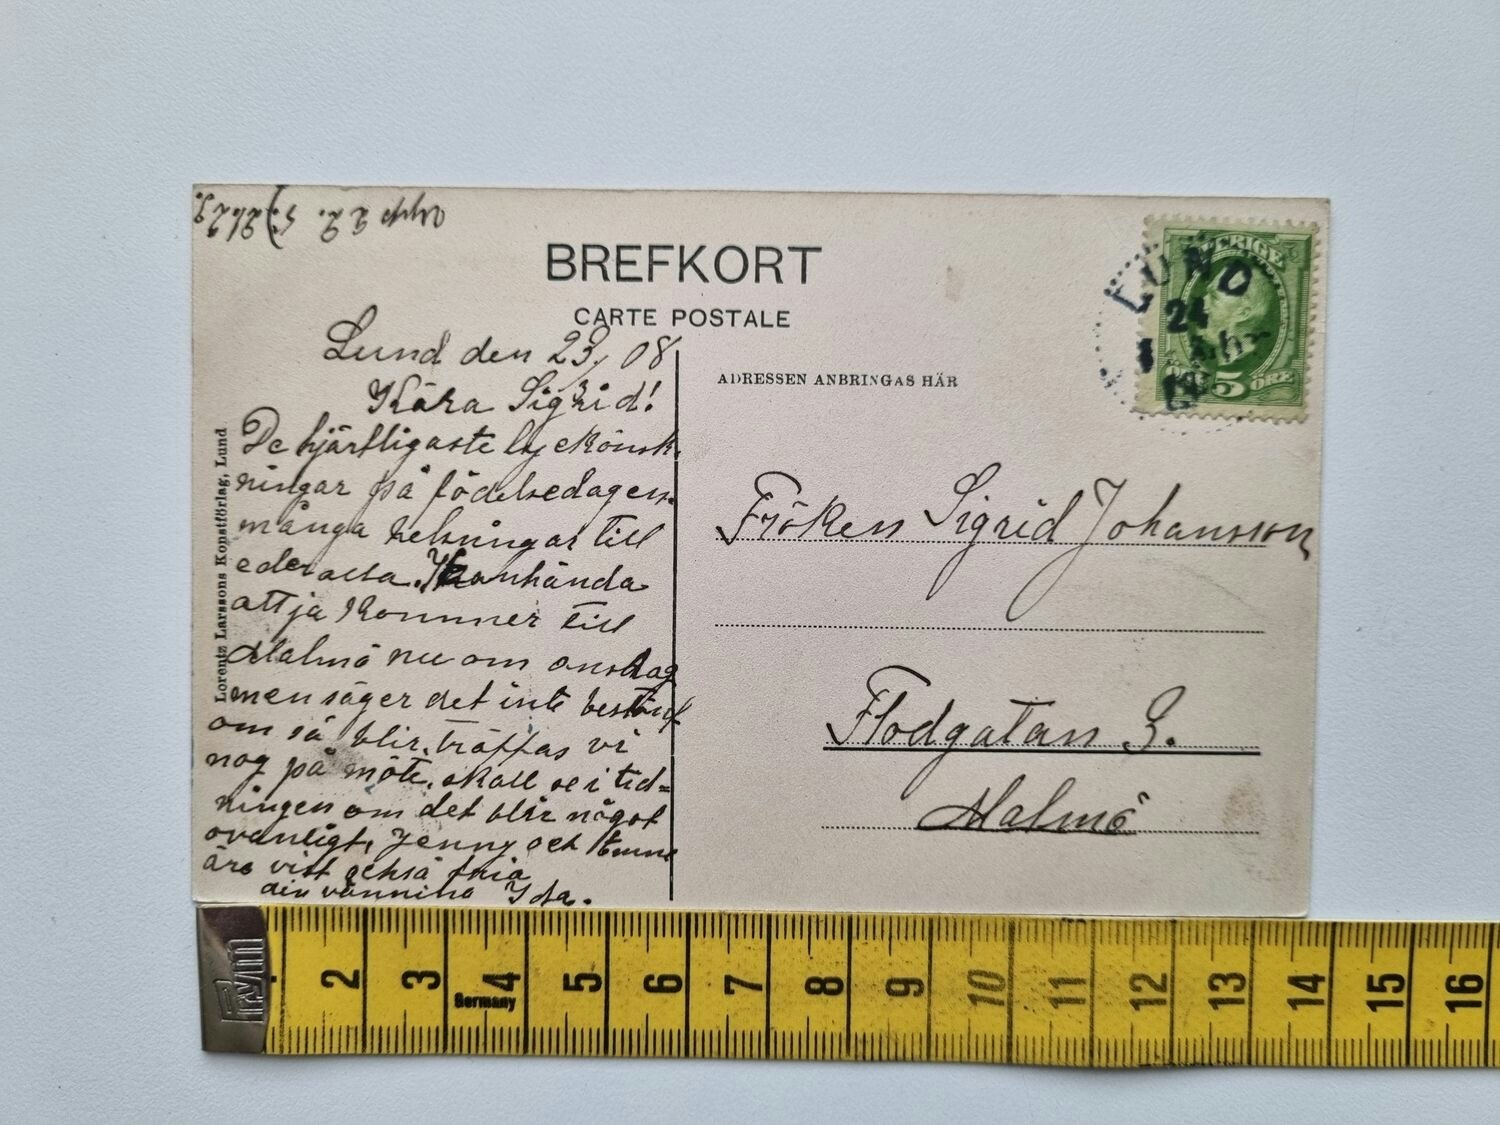 BREFKORT
CARTE POSTALE
ADRESSEN ANBRINGAS HÄR
Lorentz Larssons Konstförlag, Lund
Lund den 23/ 08
Kära Sigrid!
De hjärtligaste lyckönsk-
ningar på födelsedagen.
många helsningar till
eder alla. Kanhända
att ja kommer till
Malmö nu om onsdag
men säger det inte bestämt
om så blir, träffas vi
nog på möte. skall se i tid=
ningen om det blir något
ovanligt, Jenny och
äro vist också
din väninna Ida.
SVERIGE
5 ÖRE
LUND
24
Fröken Sigrid Johansson
Flodgatan 3.
Malmö
2 3 4 5 6 7 8 9 10 11 12 13 14 15 16
Germany